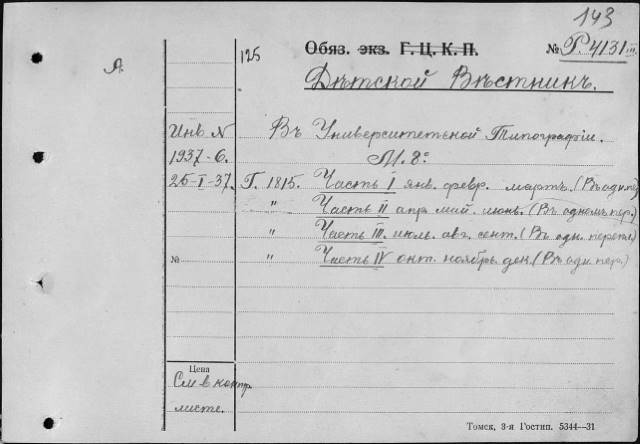 143
125 Обяз. экз. Г. Ц. К. П. № Р.4131 III
А.
Дѣтской Вѣстникъ.
Инв. N Въ Университетской Типографіи.
1937-6. М. 8º
25-I-37. Г. 1815. Часть I янв. февр. мартъ. (Въ одн. пер.)
" Часть II апр. май. июнь. (Въ одномъ пер.)
" Часть III. июль. авг. сент. (Въ одн. перепл.)
№ " Часть IV окт. ноябрь. дек. (Въ одн. пер.)
Цена
См. в контр.
листе.
Томск, 3-я Гостип. 5344—31